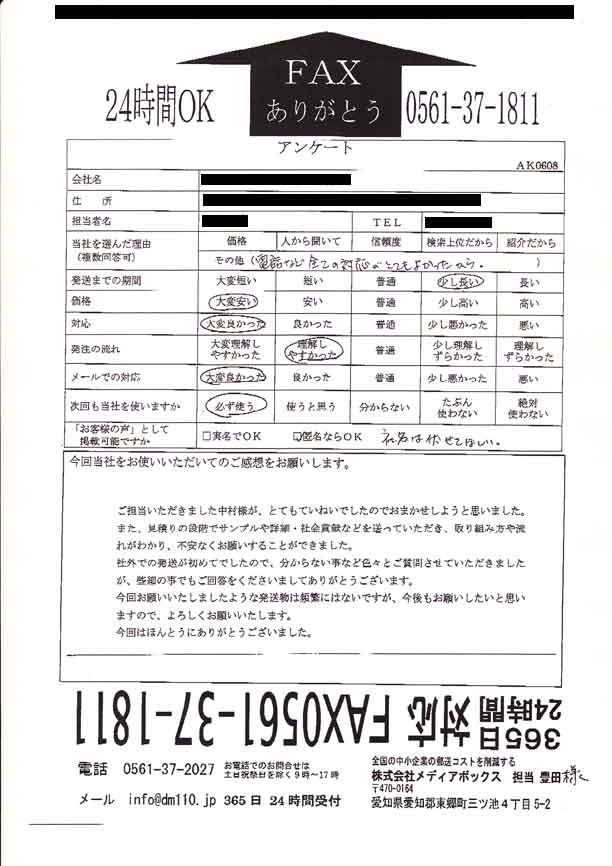 FAX
ありがとう
24時間OK
0561-37-1811
アンケート
AK0608
会社名
住　所
担当者名 TEL
当社を選んだ理由 (複数回答可) 価格 人から聞いて 信頼度 検索上位だから 紹介だから
その他 (電話など全ての対応がとてもよかったから。)
発送までの期間 大変短い 短い 普通 少し長い 長い
価格 大変安い 安い 普通 少し高い 高い
対応 大変良かった 良かった 普通 少し悪かった 悪い
発注の流れ 大変理解しやすかった 理解しやすかった 普通 少し理解しずらかった 理解しずらかった
メールでの対応 大変良かった 良かった 普通 少し悪かった 悪い
次回も当社を使いますか 必ず使う 使うと思う 分からない たぶん使わない 絶対使わない
「お客様の声」として掲載可能ですか □実名でOK ☑匿名ならOK 社名は伏せてほしい。
今回当社をお使いいただいてのご感想をお願いします。
ご担当いただきました中村様が、とてもていねいでしたのでおまかせしようと思いました。
また、見積りの段階でサンプルや詳細・社会貢献などを送っていただき、取り組み方や流
れがわかり、不安なくお願いすることができました。
社外での発送が初めてでしたので、分からない事など色々とご質問させていただきました
が、些細の事でもご回答をくださいましてありがとうございます。
今回お願いいたしましたような発送物は頻繁にはないですが、今後もお願いしたいと思い
ますので、よろしくお願いいたします。
今回はほんとうにありがとうございました。
365日24時間対応 FAX0561-37-1811
電話 0561-37-2027 お電話でのお問合せは
土日祝祭日を除く9時～17時
メール info@dm110.jp 365日24時間受付
全国の中小企業の郵送コストを削減する
株式会社メディアボックス 担当 豊田様
〒470-0164
愛知県愛知郡東郷町三ツ池4丁目5-2